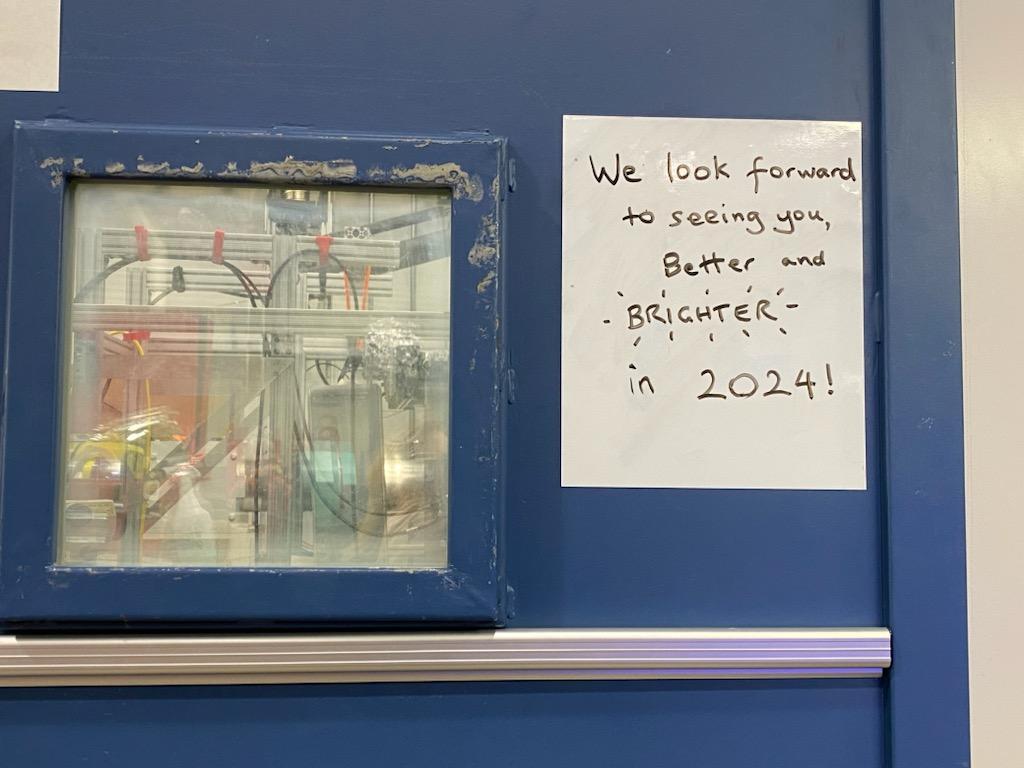 We look forward
to seeing you,
Better and
- BRIGHTER -
in 2024!